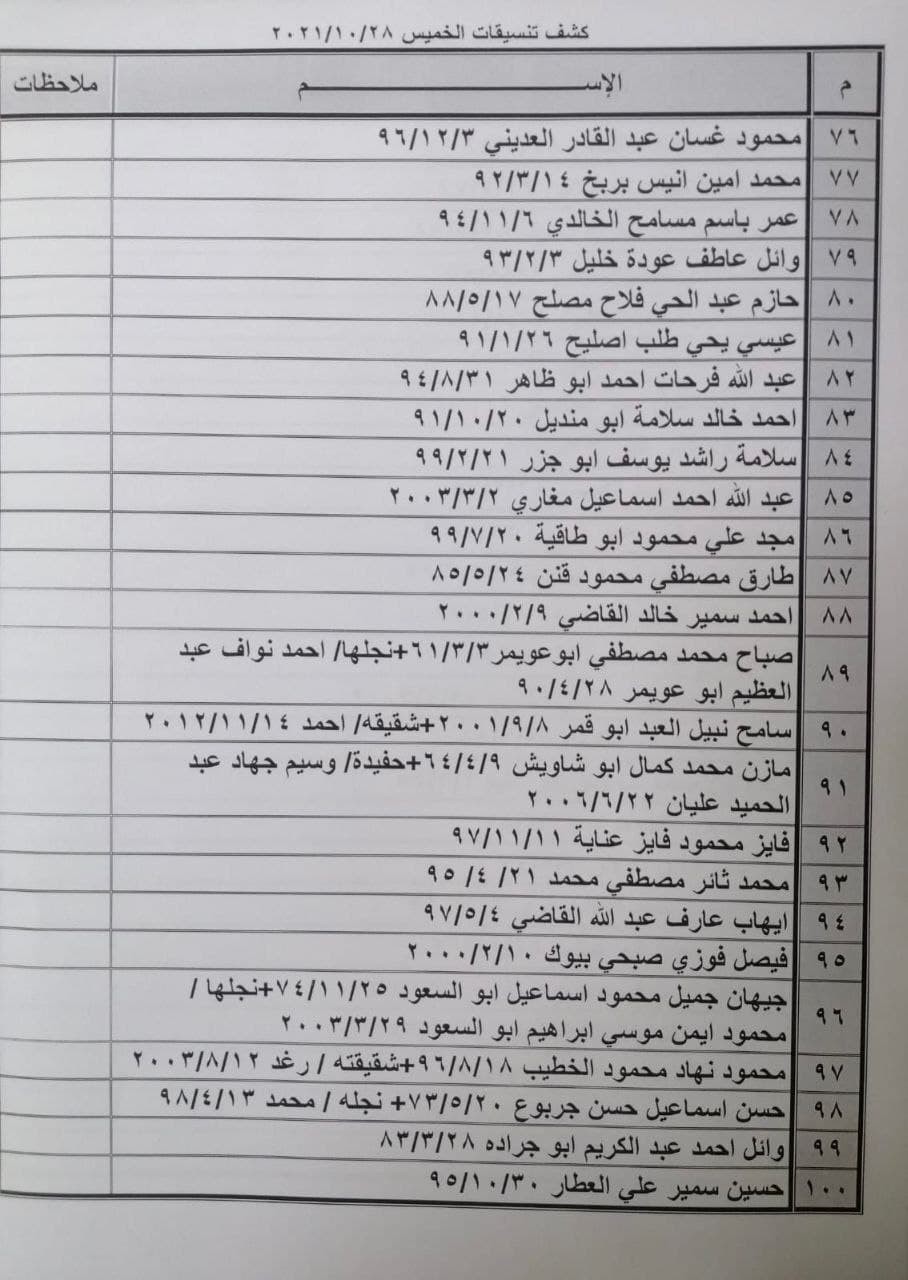 كشف تنسيقات الخميس ٢٠٢١/١٠/٢٨
م الإســـــــــم ملاحظات
٧٦ محمود غسان عبد القادر العديني ٩٦/١٢/٣
٧٧ محمد امين انيس بربخ ٩٢/٣/١٤
٧٨ عمر باسم مسامح الخالدي ٩٤/١١/٦
٧٩ وائل عاطف عودة خليل ٩٣/٢/٣
٨٠ حازم عبد الحي فلاح مصلح ٨٨/٥/١٧
٨١ عيسي يحي طلب اصليح ٩١/١/٢٦
٨٢ عبد الله فرحات احمد ابو ظاهر ٩٤/٨/٣١
٨٣ احمد خالد سلامة ابو منديل ٩١/١٠/٢٠
٨٤ سلامة راشد يوسف ابو جزر ٩٩/٢/٢١
٨٥ عبد الله احمد اسماعيل مغاري ٢٠٠٣/٣/٢
٨٦ مجد علي محمود ابو طاقية ٩٩/٧/٢٠
٨٧ طارق مصطفي محمود قنن ٨٥/٥/٢٤
٨٨ احمد سمير خالد القاضي ٢٠٠٠/٢/٩
٨٩ صباح محمد مصطفي ابوعويمر ٦١/٣/٣+نجلها/ احمد نواف عبد
العظيم ابو عويمر ٩٠/٤/٢٨
٩٠ سامح نبيل العبد ابو قمر ٢٠٠١/٩/٨+شقيقه/ احمد ٢٠١٢/١١/١٤
٩١ مازن محمد كمال ابو شاويش ٦٤/٤/٩+حفيدة/ وسيم جهاد عبد
الحميد عليان ٢٠٠٦/٦/٢٢
٩٢ فايز محمود فايز عناية ٩٧/١١/١١
٩٣ محمد ثائر مصطفي محمد ٢١/ ٤/ ٩٥
٩٤ ايهاب عارف عبد الله القاضي ٩٧/٥/٤
٩٥ فيصل فوزي صبحي بيوك ٢٠٠٠/٢/١٠
٩٦ جيهان جميل محمود اسماعيل ابو السعود ٧٤/١١/٢٥+نجلها /
محمود ايمن موسي ابراهيم ابو السعود ٢٠٠٣/٣/٢٩
٩٧ محمود نهاد محمود الخطيب ٩٦/٨/١٨+شقيقته / رغد ٢٠٠٣/٨/١٢
٩٨ حسن اسماعيل حسن جربوع ٧٣/٥/٢٠+ نجله / محمد ٩٨/٤/١٣
٩٩ وائل احمد عبد الكريم ابو جراده ٨٣/٣/٢٨
١٠٠ حسين سمير علي العطار ٩٥/١٠/٣٠